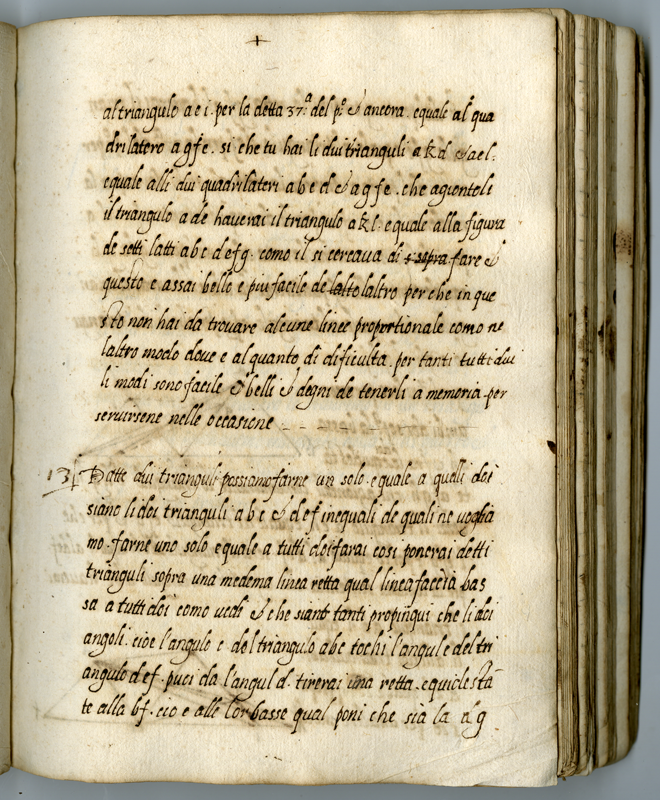 +
al triangulo a e i. per la detta 37.ª del pº & ancora equale al qua
drilatero a g f e. si che tu hai li dui trianguli a k d & a e l.
equale alli dui quadrilateri a b c d & a g f e. che agiontoli
il triangulo a d e haverai il triangulo a k l. equale alla figura
de setti latti a b c d e f g. como il si cercava di sopra fare &
questo e assai bello e piu facile de lalto laltro per che in que
sto non hai da trovare alcune linee proportionale como ne
laltro modo dove e al quanto di dificulta. per tanti tutti dui
li modi sono facile & belli & degni de tenerli a memoria. per
servirsene nelle occasione
13 Datte dui trianguli possiamo farne un solo. equale a quelli doi
siano li doi trianguli a b c & d e f inequali de quali ne voglia
mo. farne uno solo equale a tutti doi farai cosi ponerai detti
trianguli sopra una medema linea retta qual linea faccia bas
sa a tutti doi como vedi & che siant tanti propinqui che li doi
angoli. cioe l'angulo c. del triangulo abc tochi l'angul e del tri
angulo d e f. puoi da l'angul d. tirerai una retta. equidesta
te alla b f. cio e alle lor basse qual poni che sia la d g